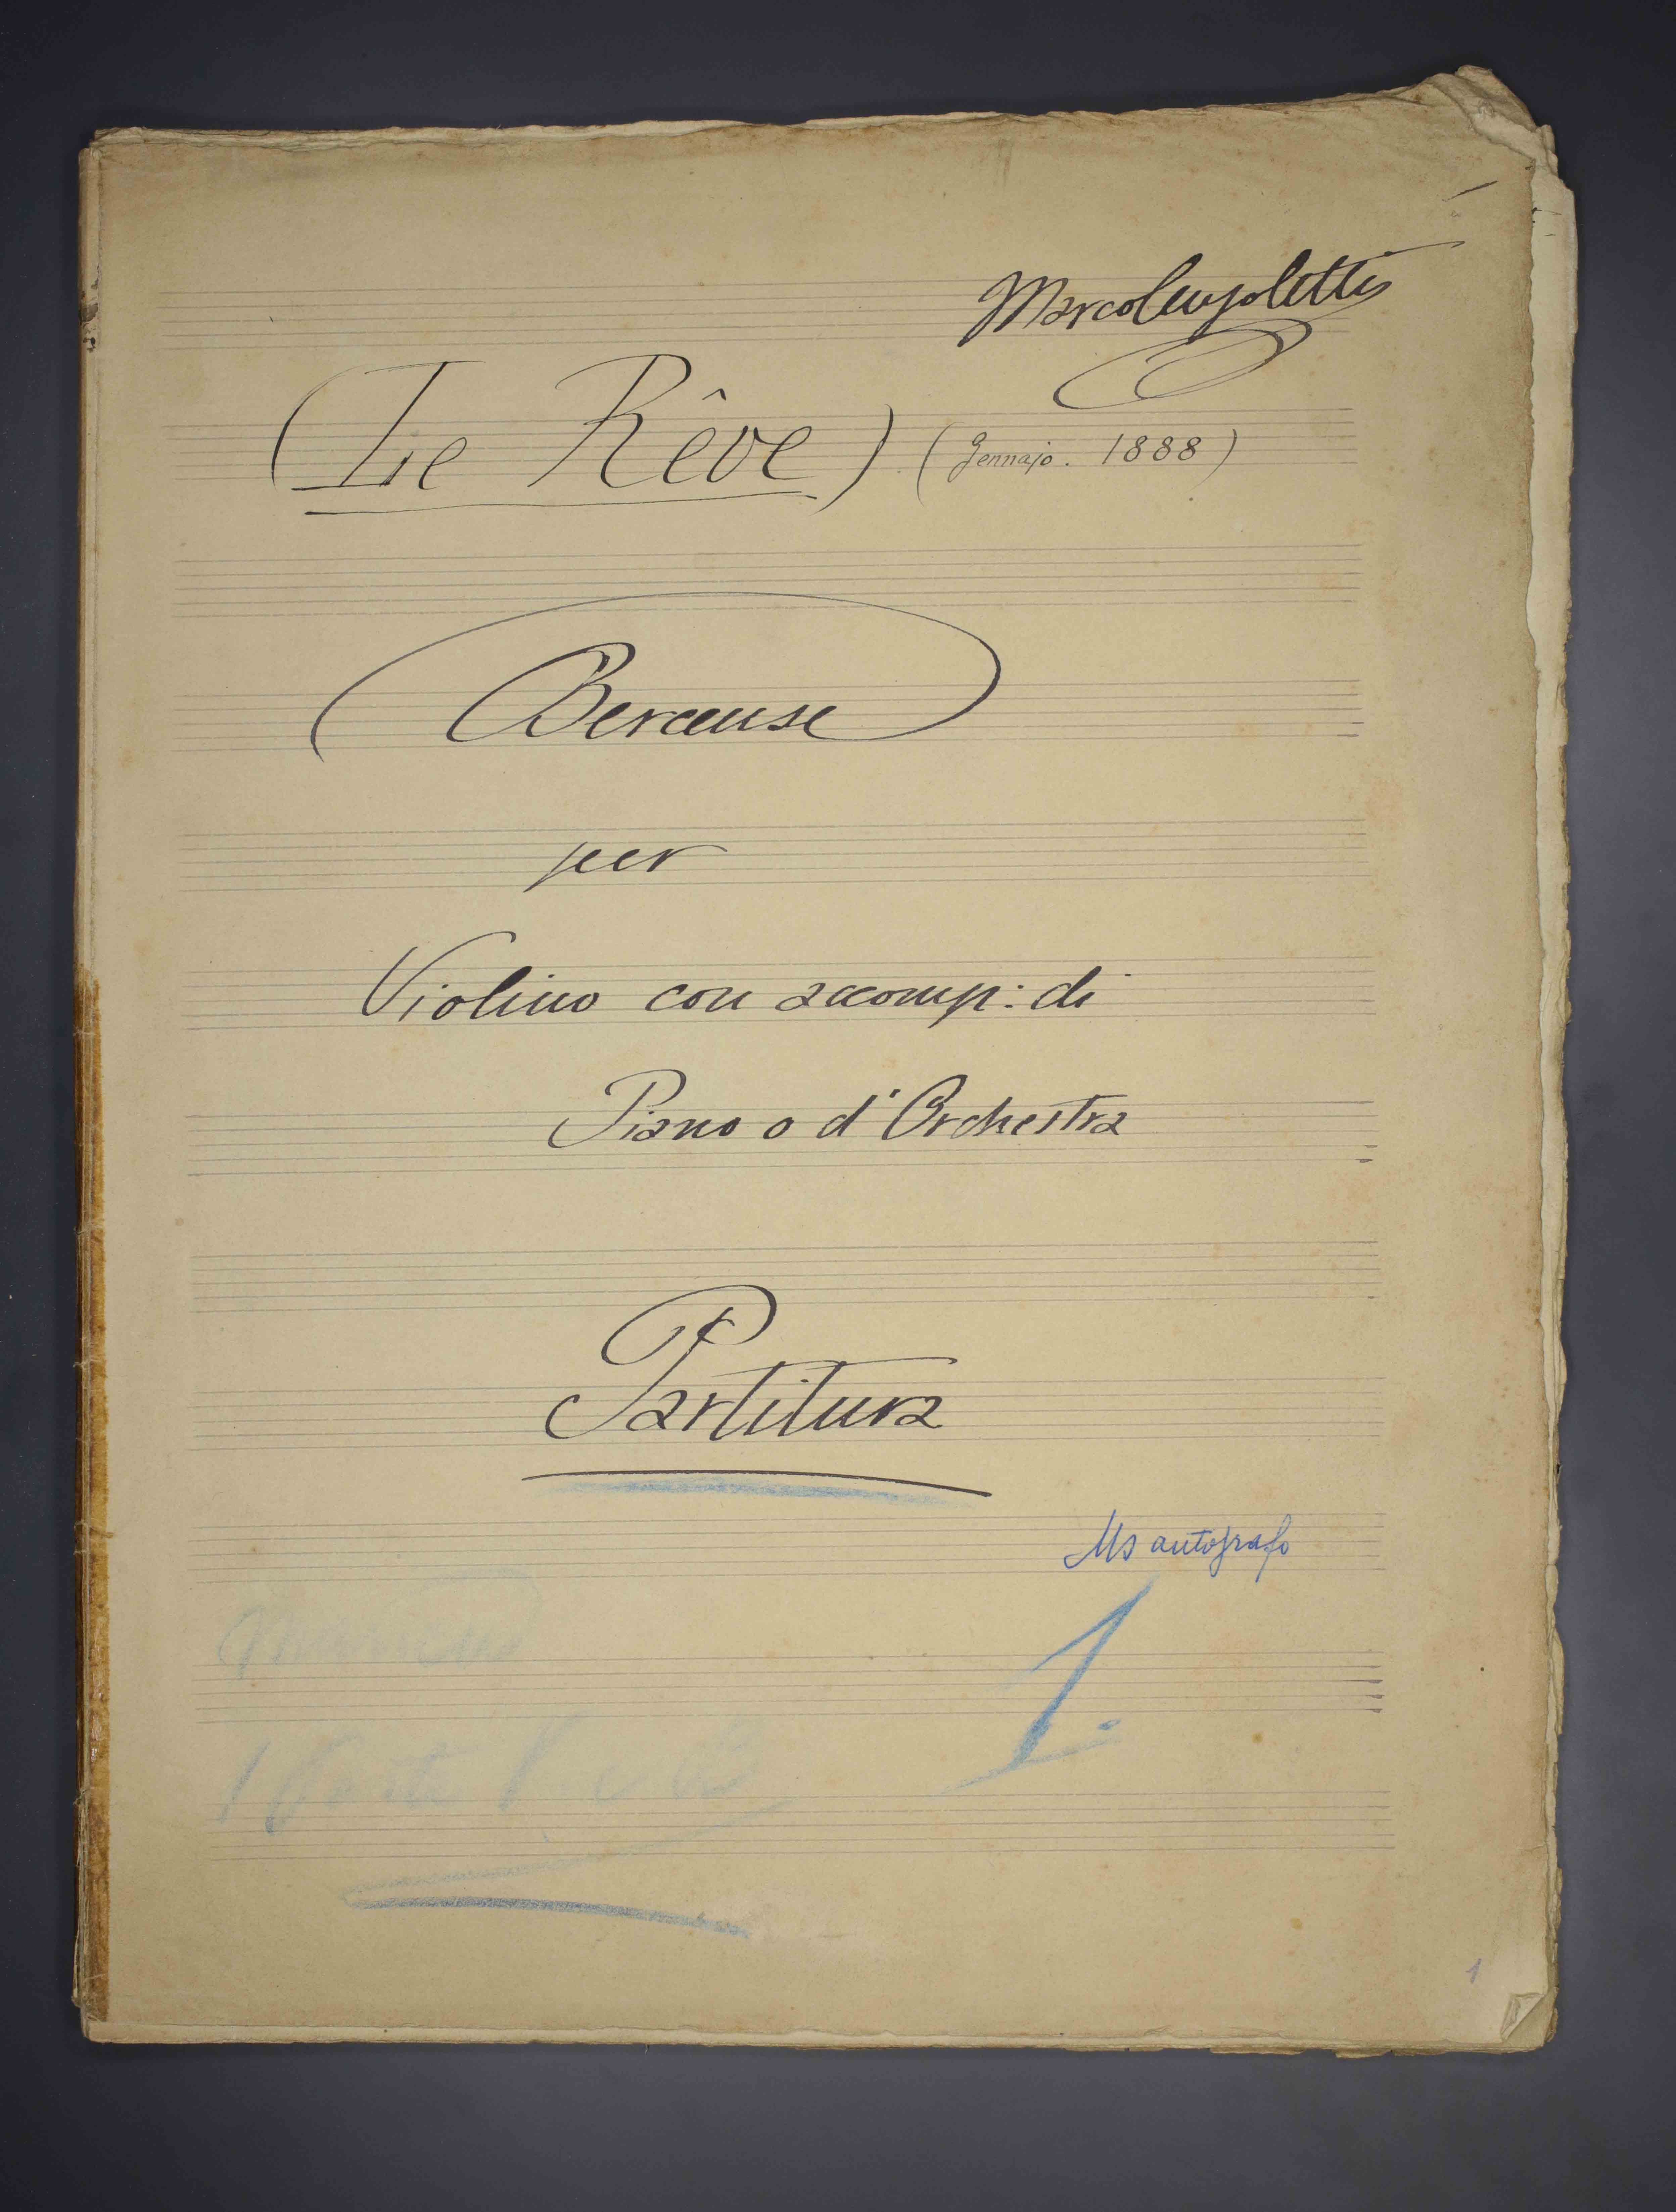 Marco Anzoletti
(Le Rêve) (Gennajo. 1888)
Berceuse
per
Violino con accomp: di
Piano o d'Orchestra
Partitura
Ms autografo
1.
1